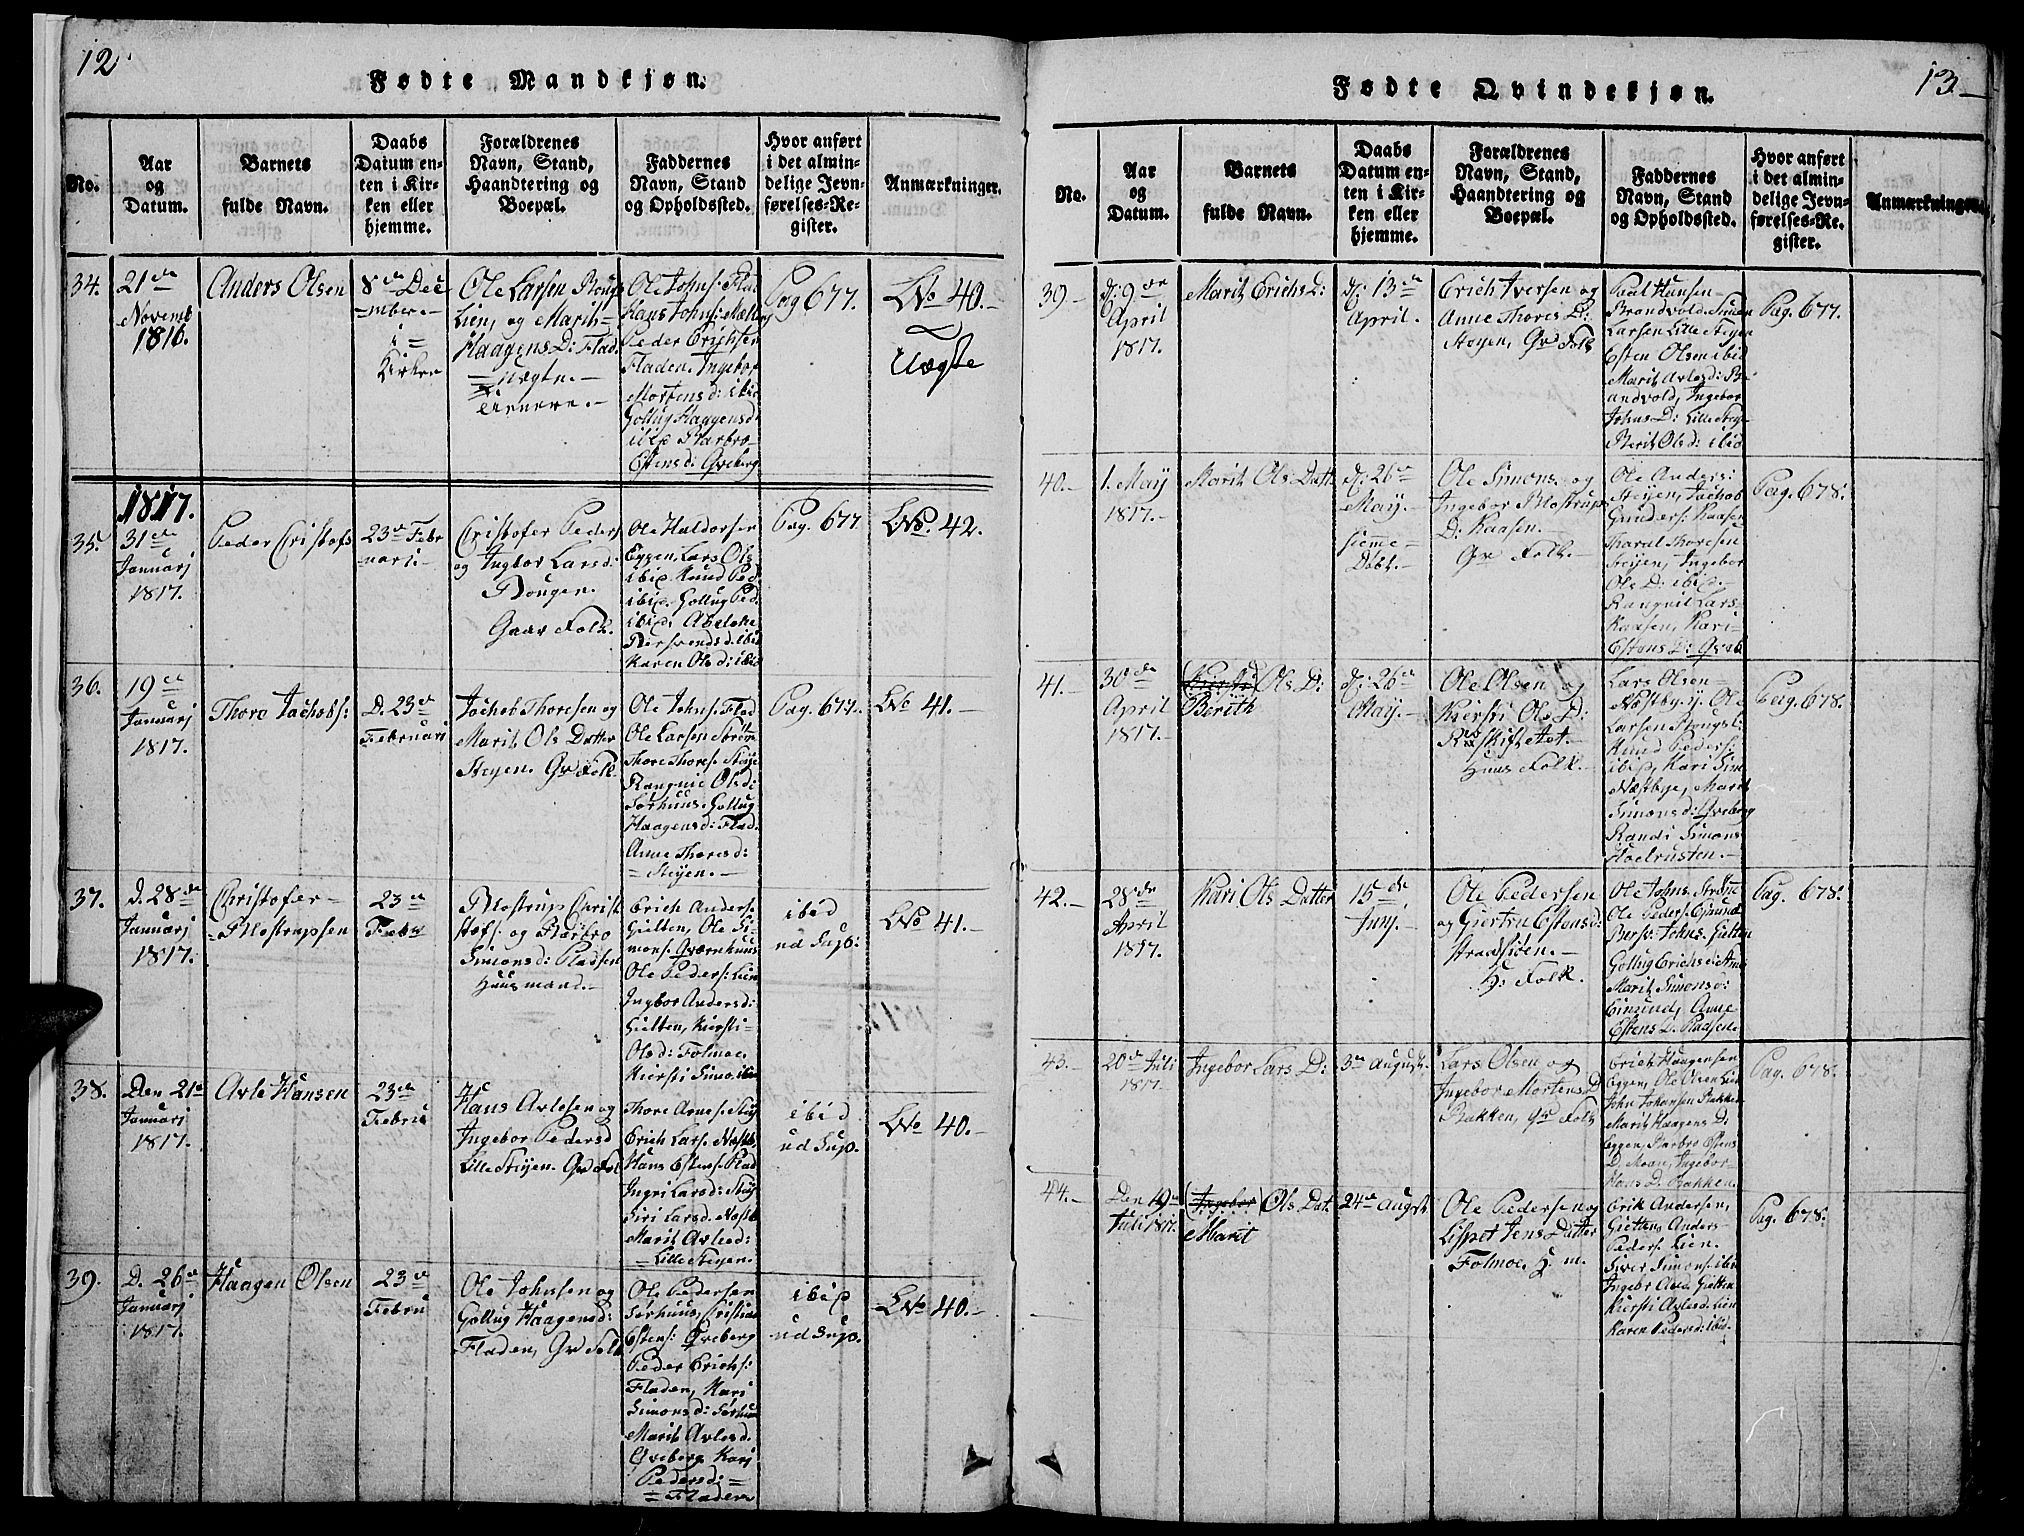 12
Fødte Mandkjøn.
No.
Aar
og
Datum.
Barnets
fulde Navn.
Daabs
Datum en-
ten i Kir-
ken eller
hjemme.
Forældrenes
Navn, Stand,
Haandtering og
Boepæl.
Faddernes
Navn, Stand
og Opholdssted.
Hvor anført
i det almin-
delige Jevn-
førelses-Re-
gister.
Anmærkninger.
34.
21de
Novemb
1816.
Anders Olsen
8de Dec
=mber.=
i=
Kirken
Ole Larsen
Lien, og Marit=
Haagens D: Flad.
=Uægte.=
Ole Johns: Flad
Hans Johns:
Peder Erichsen
Fladen, Ingebor
Mortensd: ibid
Gollug Haagensd:
ibid Barbro=
Estensd: Qveberg
Pag 677.
No 40.=
Uægte
1817.
35.
31de
Januarj
1817.
Peder Cristofs
23de Febr
=uari.=
Cristofer Peders
og Ingbor Larsd:
Rougen.
Gaar Folk.
Ole Haldorsen
Eggen, Lars Ols
ibid. Knud Ped.
ibid. Gollug Ped.
ibid,
ibid
Karen Olsd: ibid
Pag. 677
No. 42.
36.
19de
Januarj
1817.
Thore Jachobs:
D. 23de
Februari
Jachob Thoresen og
Marit Ols Datter
Steyen. Gr Folk.
Ole Johns: Flad
Ole Larsen
Thore Thores: Steye
Rangnie Olsd:
Sørhuus. Gollug
Haagensd: Flad.
Anne Thoresd:
=Steyen.=
Pag. 677.
No 41.=
37.
D. 28de
Januarj
1817.
Christofer=
=Mostrupsen
23de
Febr
Mostrup Christ
stofs: og Barbro
Simonsd: Pladsen
Huusmand.=
Erich Anders:
Gielten, Ole Si-
mons: Qværnhuus
Ole Peders: Lien
Ingbor Andersd:
Gielten, Kiersti=
Olsd: Folmoe.
Kiersti Simo: ibid
ibid
ud Sup:
No 41.=
38.
Den 21de
Januarj
1817.
Arle Hansen
23de
Februi
Hans Arlesen og
Ingebor Pedersd
Lille Steyen. Gr Fol
Thore Arnes: Stey
Erich Lars: Næstb.
Hans Estens: Flad
Ingri Larsd: Stey
Siri Larsd. Næstb.
Marit Arlesd:
=Lille Steyen.
ibid
ud Sup.
No 40.=
39.
D. 26de
Januarj
1817.
Haagen Olsen
23de
Februi
Ole Johnsen og
Gollug Haagensd:
Fladen, Gr Folk
Ole Pedersen
Sørhuus, Cristian
Estens: Qveberg
Peder Erichs:
Fladen, Kari
Simonsd: Sørhuus
Marit Arlesd.
Qveberg Kari
Pedersd:=
=Fladen
ibid
ud Sup.
No 40.=
13.
Fødte Qvindekjøn.
No.
Aar
og
Datum.
Barnets
fulde Navn.
Daabs
Datum en-
ten i Kir-
ken eller
hjemme.
Forældrenes
Navn, Stand,
Haandtering og
Boepæl.
Faddernes
Navn, Stand
og Opholdssted.
Hvor anført
i det almin-
delige Jevn-
førelses-Re-
gister.
Anmærkninger.
39=
d: 9de
April
1817.
Marit Erichs D:
d: 13de
April.
Erich Iversen og
Anne Thores D:
Steyen, Gr Folk
Paul Hansen=
Brandvold. Simen
Larsen Lille Steyen
Esten Olsen ibid
Marit Arlesd: Br
andvold, Ingebor
Johns D: Lille Steye
Berit Olsd: ibid
Pag. 677.
40.=
1. May
1817.=
Marit Ols Datt
d: 26de
May.=
Hiemme=
Døbt.=
Ole Simons. og
Ingebor Mostrups
D: Kaasen.
Gr Folk.=
Ole Anders:
Steyen, Jachob
Gunders: Kaasen
Tharal Thoresen
Steyen, Ingebor
Ols D: ibid.
Rangnil Lars=
Kaasen, Kari=
Estens D: Qveb.
Pag. 678.
41.=
30de
April
1817.=
(Kiersti) Ols D:
Berith
d: 26de
May.=
Ole Olsen og
Kiersti Ols D:
Røskiftet.=
Huus Folk.=
Lars Olsen=
Næstbye. Ole
Larsen
Knud Peders:
ibid, Kari Sim.
Næstbye, Marit
Simonsd: Qveberg
Randi Simons
Hoelrusten.=
Pag. 678.
42.=
28de
April
1817.
Kari Ols Datter
15de
Junj.
Ole Pedersen
og Giertru Estensd:
Straasiøen.=
H: Folk.
Ole Johns. Strøm
Ole Peders: Eimund
Bersv: Johns. Gielten
Gollug Erichsd:
Marit Simonsd:
Eimund, Anne
Estens D. Kaasen.
Pag. 678.
43.=
20de Juli
1817.
Ingebor Lars D:
3de August.
Lars Olsen og
Ingebor Mortens D
Bakken, Gr Folk
Erich Haagensen
Eggen, Ole Olsen Lien
John Johansen Bakken
Marit Haagens D:
Eggen, Barbro Estens
D. Moan, Ingebor=
Hans D. Bakken.
Pag. 678.
44.=
Den 19de
Juli 1817.
(Ingebor) Ols Dat.
Marit
24de August
Ole Pedersen og
Lisspet Jens Datter
Folmoe, H. m.
Erik Andersen,
Gietten, Anders=
Peders. Lien.
Siver Simons: ibid
Ingebr Gietten
Kiersti Arlesd: Lien
Karen Pedersd: ibid.
Pag. 678.